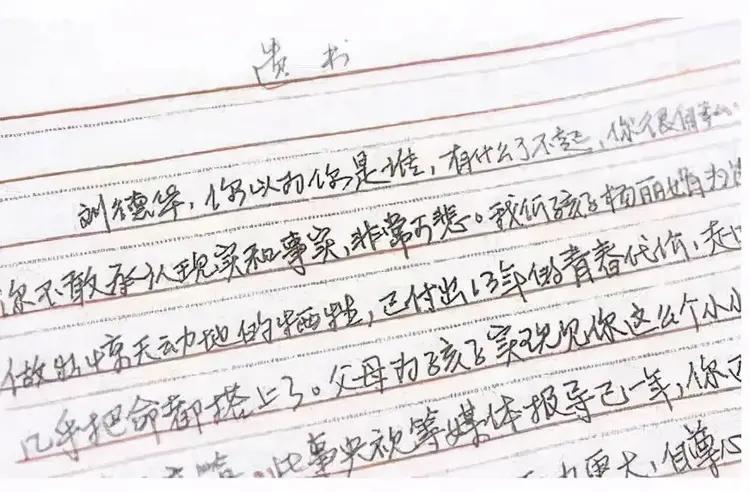 遗书
刘德华,你以为你是谁,有什么了不起,你很自私
你不敢承认现实和事实,非常可悲。我们孩子杨丽娟为
做出惊天动地的牺牲,已付出13年的青春代价,
几乎把命都搭上了。父母为孩子实现见你这么个小小
此事央视等媒体报导已一年,你
更大,自尊心